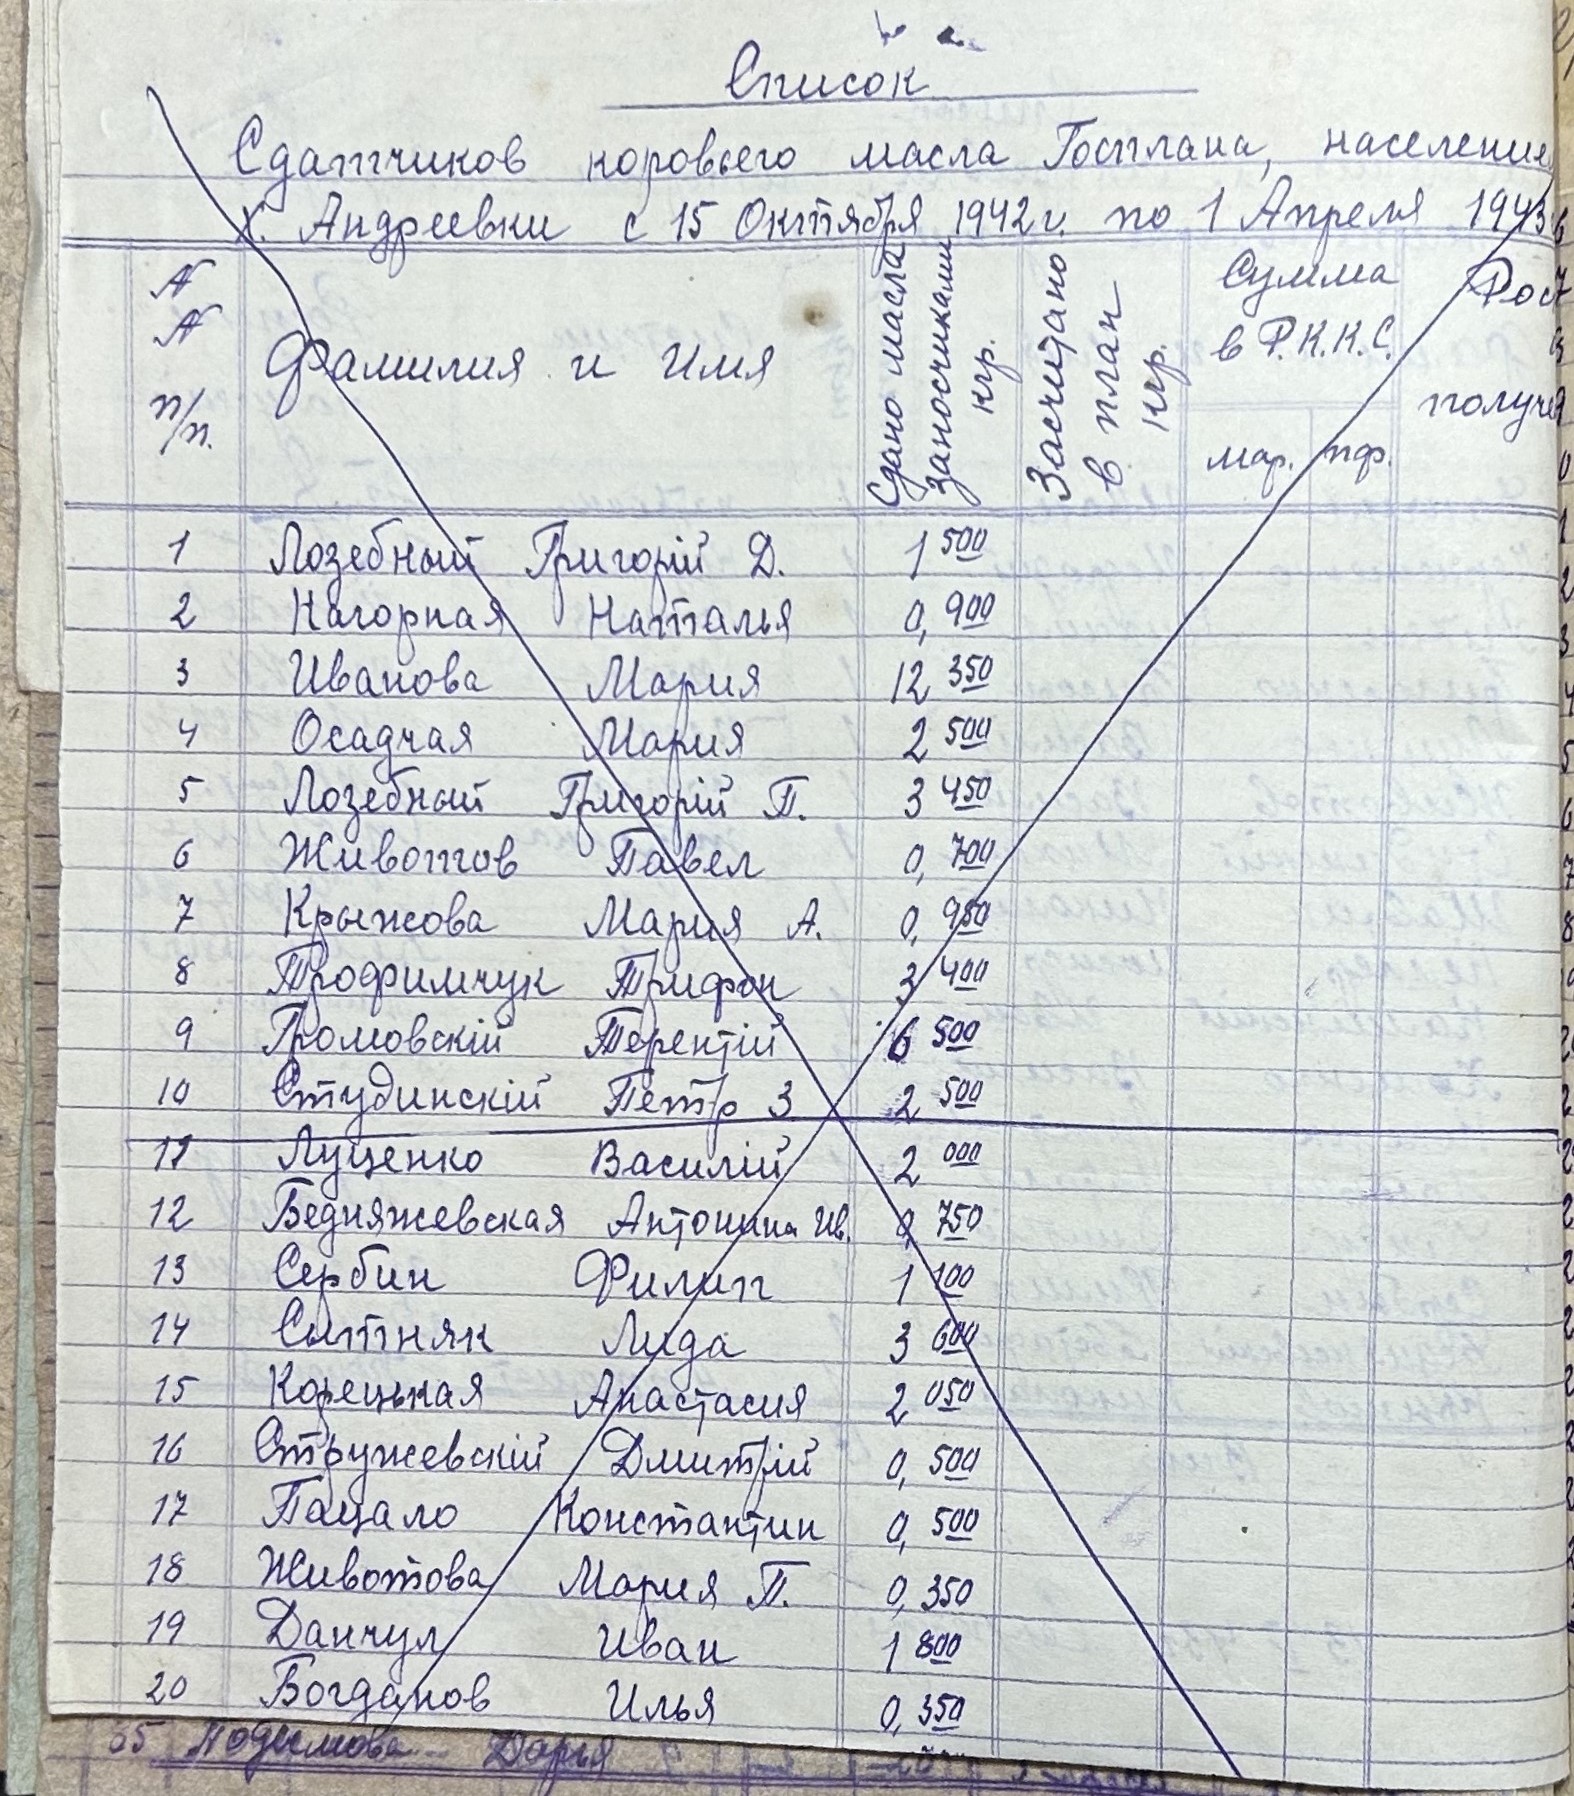 Список
Сдатчиков коровьего масла Госплана, населения
х. Андреевки с 15 Октября 1942 г. по 1 Апреля 1943
N N п/п. Фамилия и Имя Сдано масла заносчиками кгр. Засчитано в план кгр. Сумма в Р.К.К.С. мар. пф. получе
1 Лозебный Григорій Д. 1 500
2 Нагорная Наталья 0, 900
3 Иванова Мария 12 350
4 Осадчая Мария 2 500
5 Лозебный Григорій П. 3 450
6 Животов Павел 0, 700
7 Крыжова Мария А. 0, 950
8 Трофимчук Трифон 3 400
9 Громовскій Терентій 6 500
10 Студинскій Петр З 2 500
11 Луценко Василій 2 000
12 Бедняжевская Антонина Ив. 0, 750
13 Сербин Филип 1 100
14 Сытняк Лида 3 600
15 Корецькая Анастасия 2 050
16 Стружевскій Дмитрій 0, 500
17 Пацало Константин 0, 500
18 Животова Мария П. 0, 350
19 Данчул Иван 1 800
20 Богданов Илья 0, 350
35 Подымова Дарья